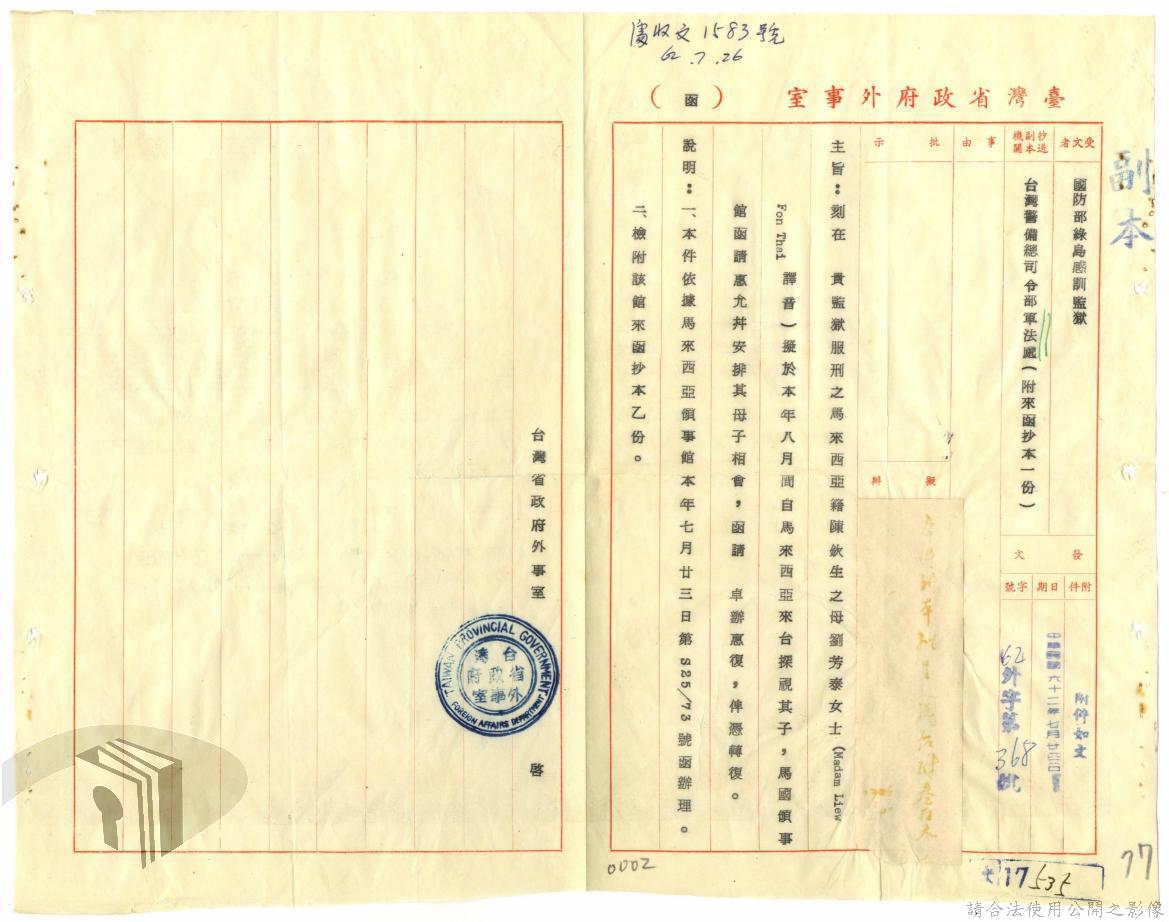 處收文1583號
62.7.26
臺灣省政府外事室(函)
副本
受文者
國防部綠島感訓監獄
抄送副本機關
台灣警備總司令部軍法處(附來函抄本一份)
事由
批示
擬辦
發文
附件
附件如文
日期
中華民國六十二年七月廿三日
字號
62外字第368號
主旨：刻在 貴監獄服刑之馬來西亞籍陳欽生之母劉芳泰女士(Madam Liew
Fon Thai 譯音)擬於本年八月間自馬來西亞來台探視其子，馬國領事
館函請惠允幷安排其母子相會，函請 卓辦惠復，俾憑轉復。
說明：一、本件依據馬來西亞領事館本年七月廿三日第S25/73號函辦理。
二、檢附該館來函抄本乙份。
台灣省政府外事室 啓
TAIWAN PROVINCIAL GOVERNMENT
台灣
省政府
外事室
FOREIGN AFFAIRS DEPARTMENT
0002
17
535
77
請合法使用公開之影像